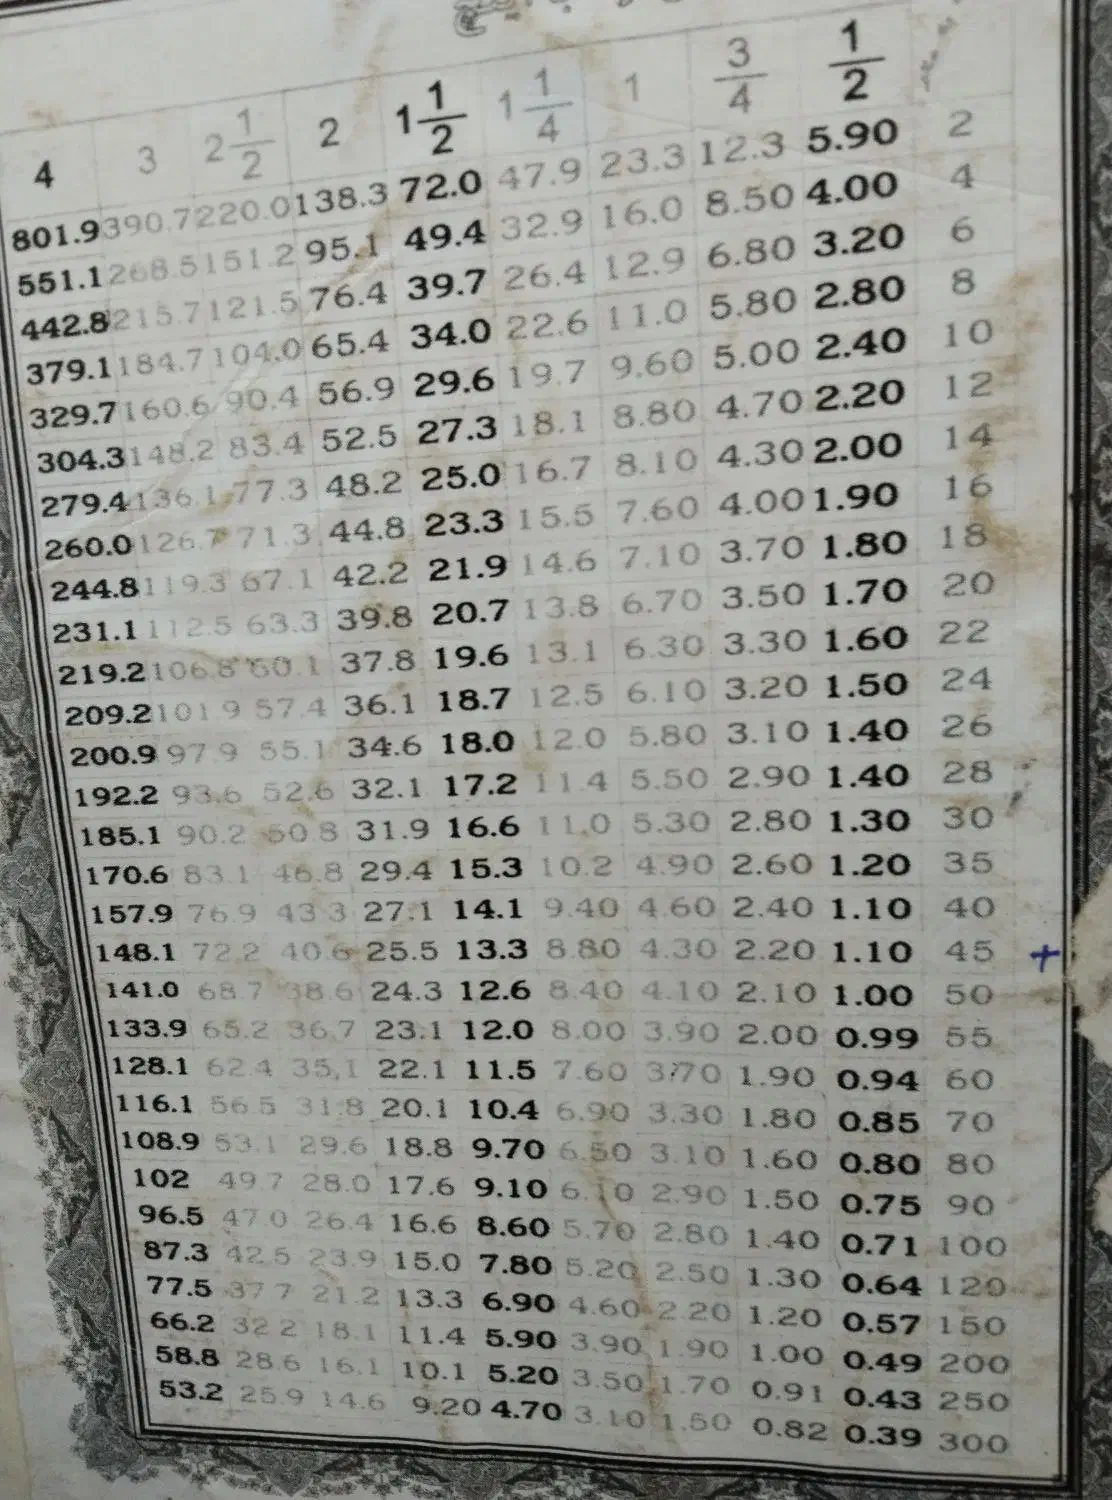 4 3 2 1/2 2 1 1/2 1 1/4 1 3/4 1/2
801.9 390.7 220.0 138.3 72.0 47.9 23.3 12.3 5.90 2
551.1 268.5 151.2 95.1 49.4 32.9 16.0 8.50 4.00 4
442.8 215.7 121.5 76.4 39.7 26.4 12.9 6.80 3.20 6
379.1 184.7 104.0 65.4 34.0 22.6 11.0 5.80 2.80 8
329.7 160.6 90.4 56.9 29.6 19.7 9.60 5.00 2.40 10
304.3 148.2 83.4 52.5 27.3 18.1 8.80 4.70 2.20 12
279.4 136.1 77.3 48.2 25.0 16.7 8.10 4.30 2.00 14
260.0 126.7 71.3 44.8 23.3 15.5 7.60 4.00 1.90 16
244.8 119.3 67.1 42.2 21.9 14.6 7.10 3.70 1.80 18
231.1 112.5 63.3 39.8 20.7 13.8 6.70 3.50 1.70 20
219.2 106.8 60.1 37.8 19.6 13.1 6.30 3.30 1.60 22
209.2 101 9 57.4 36.1 18.7 12.5 6.10 3.20 1.50 24
200.9 97 9 55.1 34.6 18.0 12.0 5.80 3.10 1.40 26
192.2 93.6 52.6 32.1 17.2 11.4 5.50 2.90 1.40 28
185.1 90.2 50.8 31.9 16.6 11.0 5.30 2.80 1.30 30
170.6 83.1 46.8 29.4 15.3 10.2 4.90 2.60 1.20 35
157.9 76.9 43 3 27.1 14.1 9.40 4.60 2.40 1.10 40
148.1 72.2 40.6 25.5 13.3 8.80 4.30 2.20 1.10 45 +
141.0 68.7 38.6 24.3 12.6 8.40 4.10 2.10 1.00 50
133.9 65.2 36.7 23.1 12.0 8.00 3.90 2.00 0.99 55
128.1 62.4 35.1 22.1 11.5 7.60 3.70 1.90 0.94 60
116.1 56.5 31.8 20.1 10.4 6.90 3.30 1.80 0.85 70
108.9 53.1 29.6 18.8 9.70 6.50 3.10 1.60 0.80 80
102 49 7 28.0 17.6 9.10 6.10 2.90 1.50 0.75 90
96.5 47 0 26.4 16.6 8.60 5.70 2.80 1.40 0.71 100
87.3 42.5 23.9 15.0 7.80 5.20 2.50 1.30 0.64 120
77.5 37 7 21.2 13.3 6.90 4.60 2.20 1.20 0.57 150
66.2 32 2 18.1 11.4 5.90 3.90 1.90 1.00 0.49 200
58.8 28.6 16.1 10.1 5.20 3.50 1.70 0.91 0.43 250
53.2 25.9 14.6 9.20 4.70 3.10 1.50 0.82 0.39 300